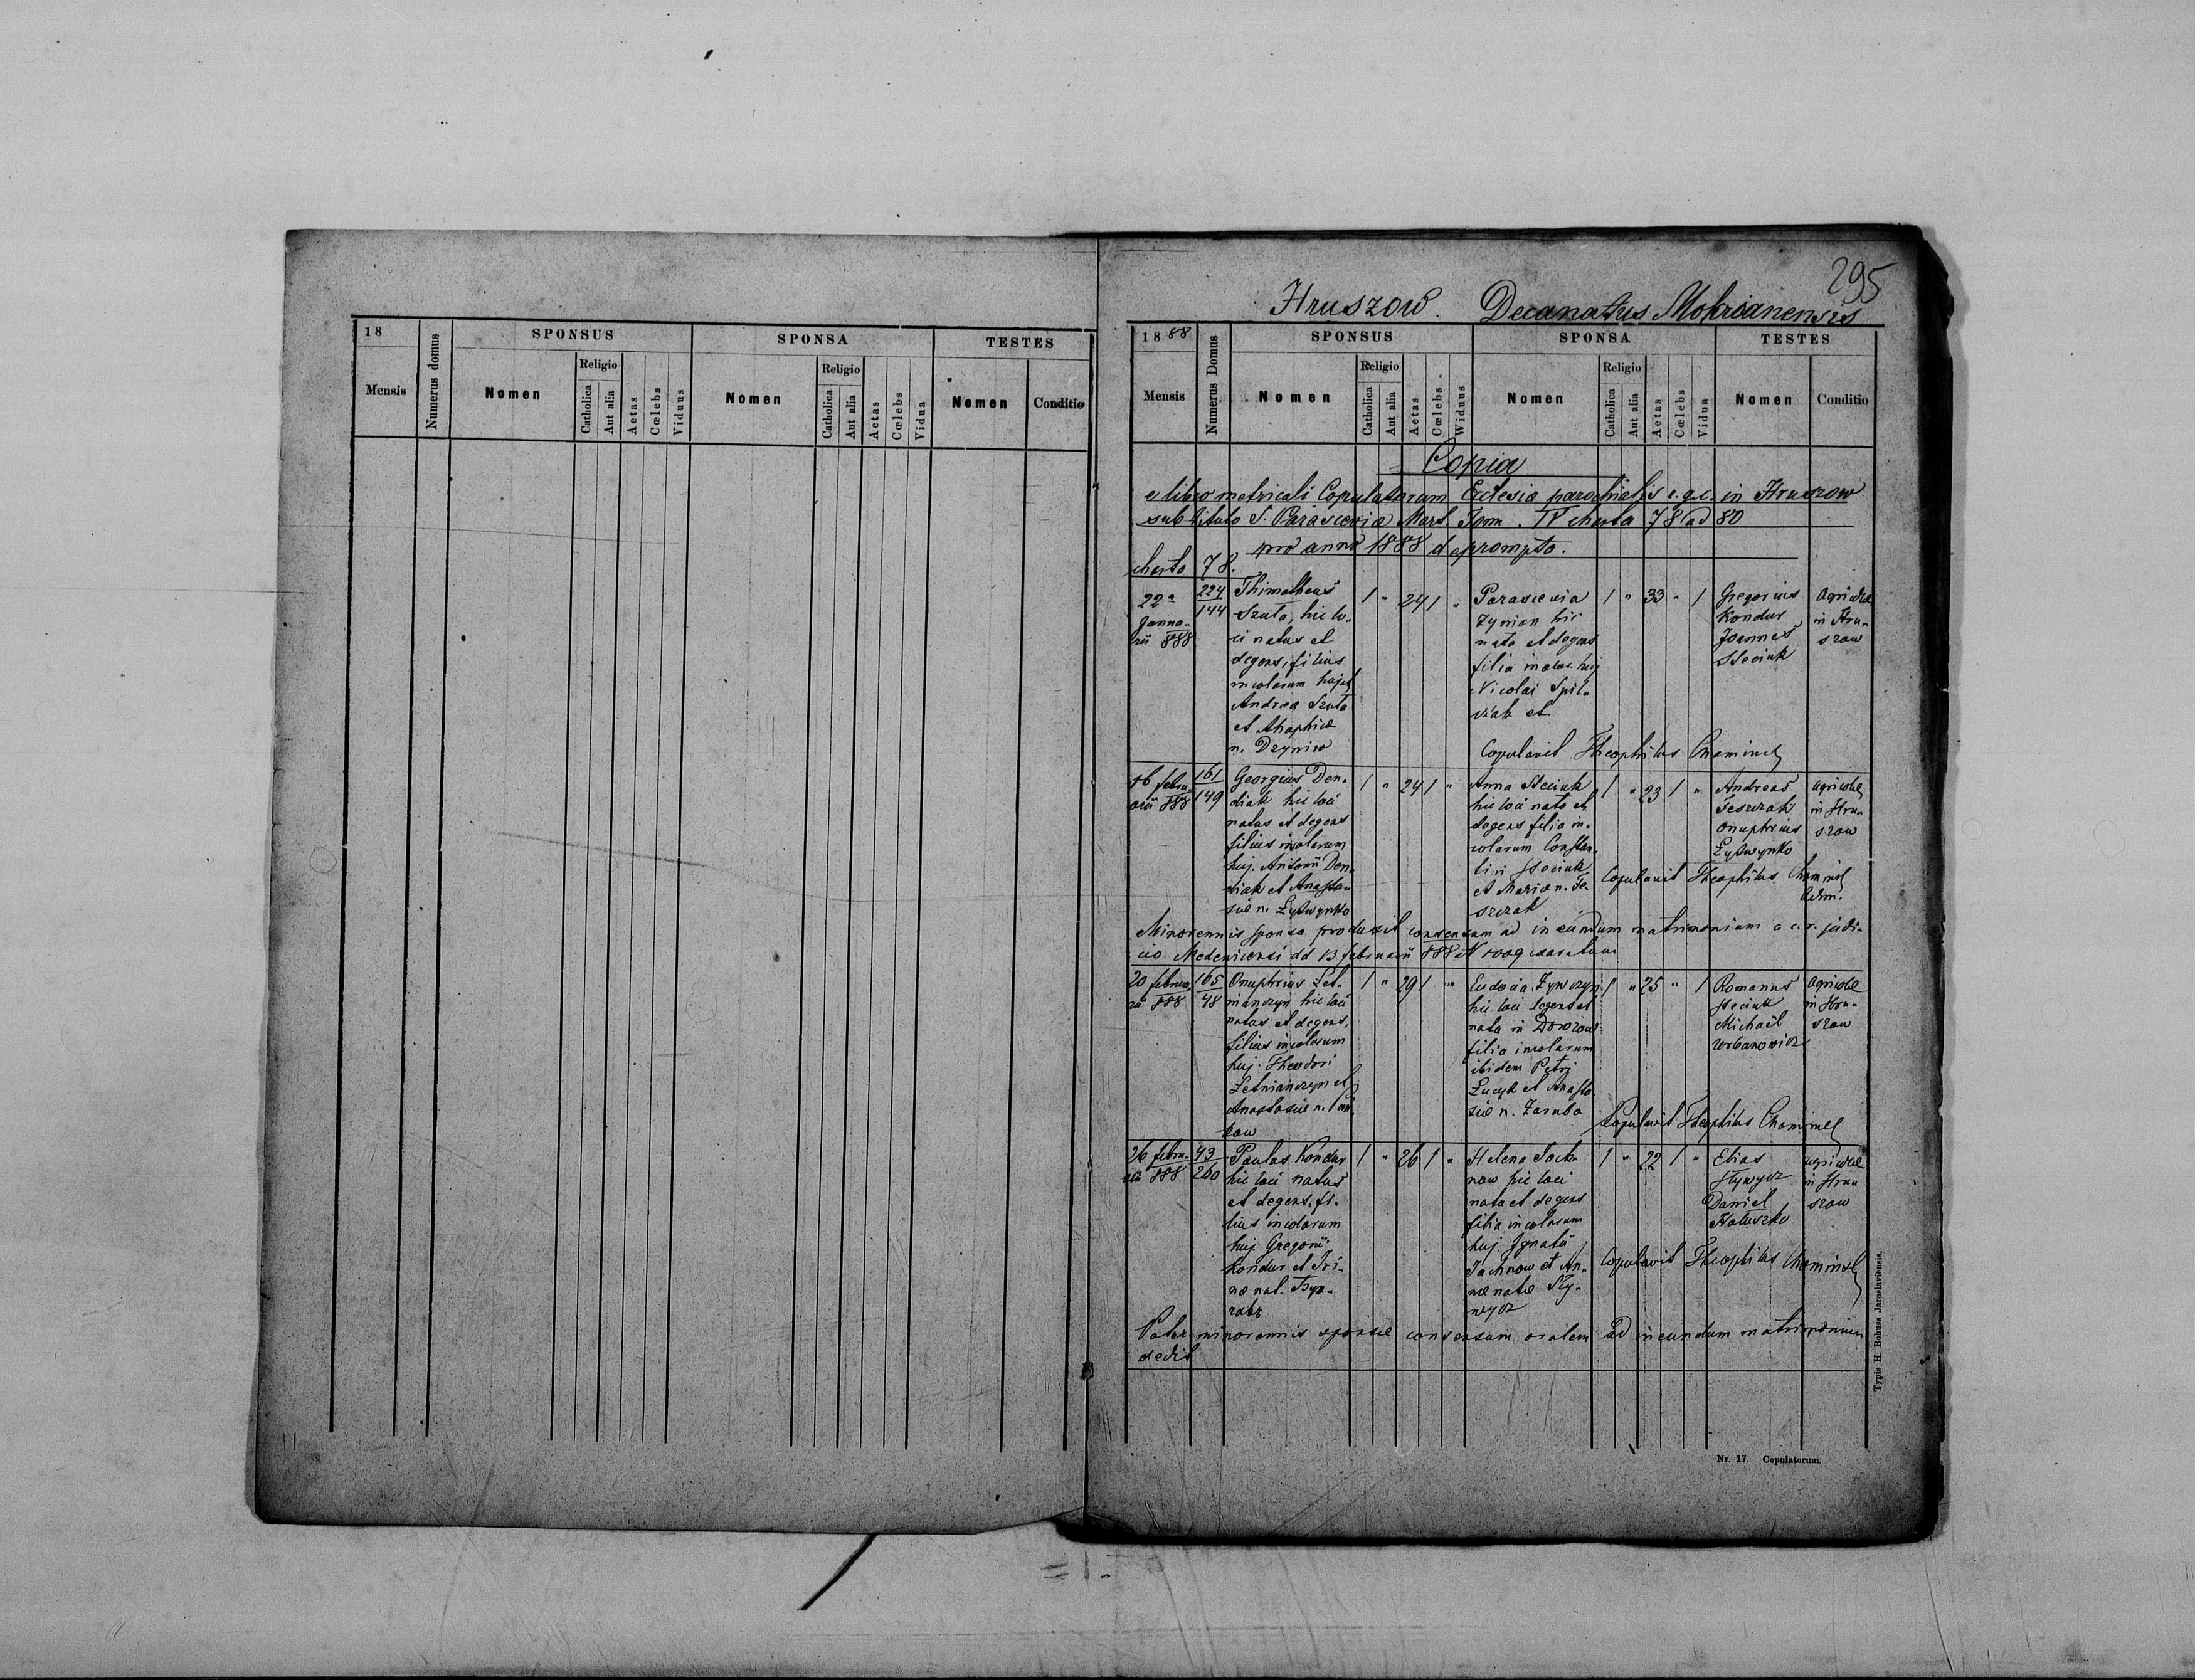 18
Mensis
Numerus domus
SPONSUS
Nomen
Religio
Catholica
Aut alia
Aetas
Cœlebs
Viduus
SPONSA
Nomen
Religio
Catholica
Aut alia
Aetas
Cœlebs
Vidua
TESTES
Nomen
Conditio
295
Hruszow. Decanatus Mokrianensis
18 88
Mensis
Numerus Domus
SPONSUS
Nomen
Religio
Catholica
Aut alia
Aetas
Cœlebs.
Widuus
SPONSA
Nomen
Religio
Catholica
Aut alia
Aetas
Cœlebs
Vidua
TESTES
Nomen
Conditio
Copia
e libro metricali Copulatorum Ecclesiæ parochialis r. g. c. in Hruszow
sub titulo S. Parascevia Mart. Tom. IV charta 78 ad 80
pro anno 1888 deprompta.
charta 78.
22a
Janna-
rii 888
224
144
Thimotheus
Szuta, hic lo-
ci natus et
degens, filius
incolarum huj
Andrea Szuta
et Ahaphiæ
n. Dzyniw
1 " 24 1 "
Parascevia
Zynian hic
nata et degens
filia incolar. huj
Nicolai Spil-
czak et
1 " 33 " 1
Gregorius
Kondur
Joannes
Steciuk
Agricolæ
in Hru-
szow
Copulavit Theophilus Chominel
16 febru-
arii 888
161
149
Georgius Den-
diak hic loci
natus et degens
filius incolarum
huj. Antonii Den-
diak et Anasta-
siæ n. Lytwynko
1 " 24 1 "
Anna Steciuk
hic loci nata et
degens filia in-
colarum Constan-
tin Steciuk
et Mariæ n. Fe-
szczak
1 " 23 1 "
Andreas
Feszczak
Onuphrius
Lytwynko
agricolæ
in Hru-
szow
Copulavit Theophilus Chominel
Adm.
Minorennis sponsa produxit consensum ad ineundum matrimonium a c. r. judi-
cio Medenicensi dd 13 februarii 888 N 1009 exaratum
20 februa-
rii 888
165
48
Onuphrius Let-
nianczyn hic loci
natus et degens,
filius incolarum
huj. Theodori
Letnianczyn et
Anastasiæ n.
kow
1 " 29 1 "
Eudocia Zywczyn
hic loci degens et
nata in
filia incolarum
ibidem Petri
Lucyk et Anasta
siæ n. Zaruba
1 " 25 " 1
Romanus
Steciuk
Michaël
Urbanowicz
agricolæ
in Hru-
szow
Copulavit Theophilus Chominel
26 febru-
arii 888
43
260
Paulus Kondur
hic loci natus
et degens, fi-
lius incolarum
huj. Gregorii
Kondur et Iri-
næ nat.
1 " 26 1 "
Helena Jach-
now hic loci
nata et degens
filia incolarum
huj. Ignatii
Jachnow et An-
næ natæ Hly-
wycz
1 " 22 1 "
Elias
Hlywycz
Daniel
Haluszko
agricolæ
in Hru-
szow
Copulavit Theophilus Chominel
Pater minorennis sponsæ consensum oralem ad ineundum matrimonium
dedit
Typis H. Bohuss Jaroslaviensis.
Nr. 17. Copulatorum.